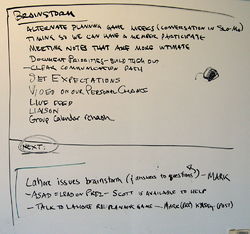 BRAINSTORM
ALTERNATE PLANNING GAME WEEKS (CONVERSATION IN
TIMING SO WE CAN HAVE A MEMBER PARTICIPATE
MEETING NOTES THAT ARE MORE INTIMATE
DOCUMENT PRIORITIES - BUILD THEM OUT
- CLEAR COMMUNICATION PATH
SET EXPECTATIONS
VIDEO ON OUR PERSONAL
LIVE FEED
LIAISON
Group Calendar refresh
NEXT:
Lahore issues brainstorm (& answers to questions) - MARK
- ASAD = LEAD ON PREZI - SCOTT IS AVAILABLE TO HELP
- TALK TO LAHORE RE: PLANNING GAME - MARK (PRE) KASEY (POST)